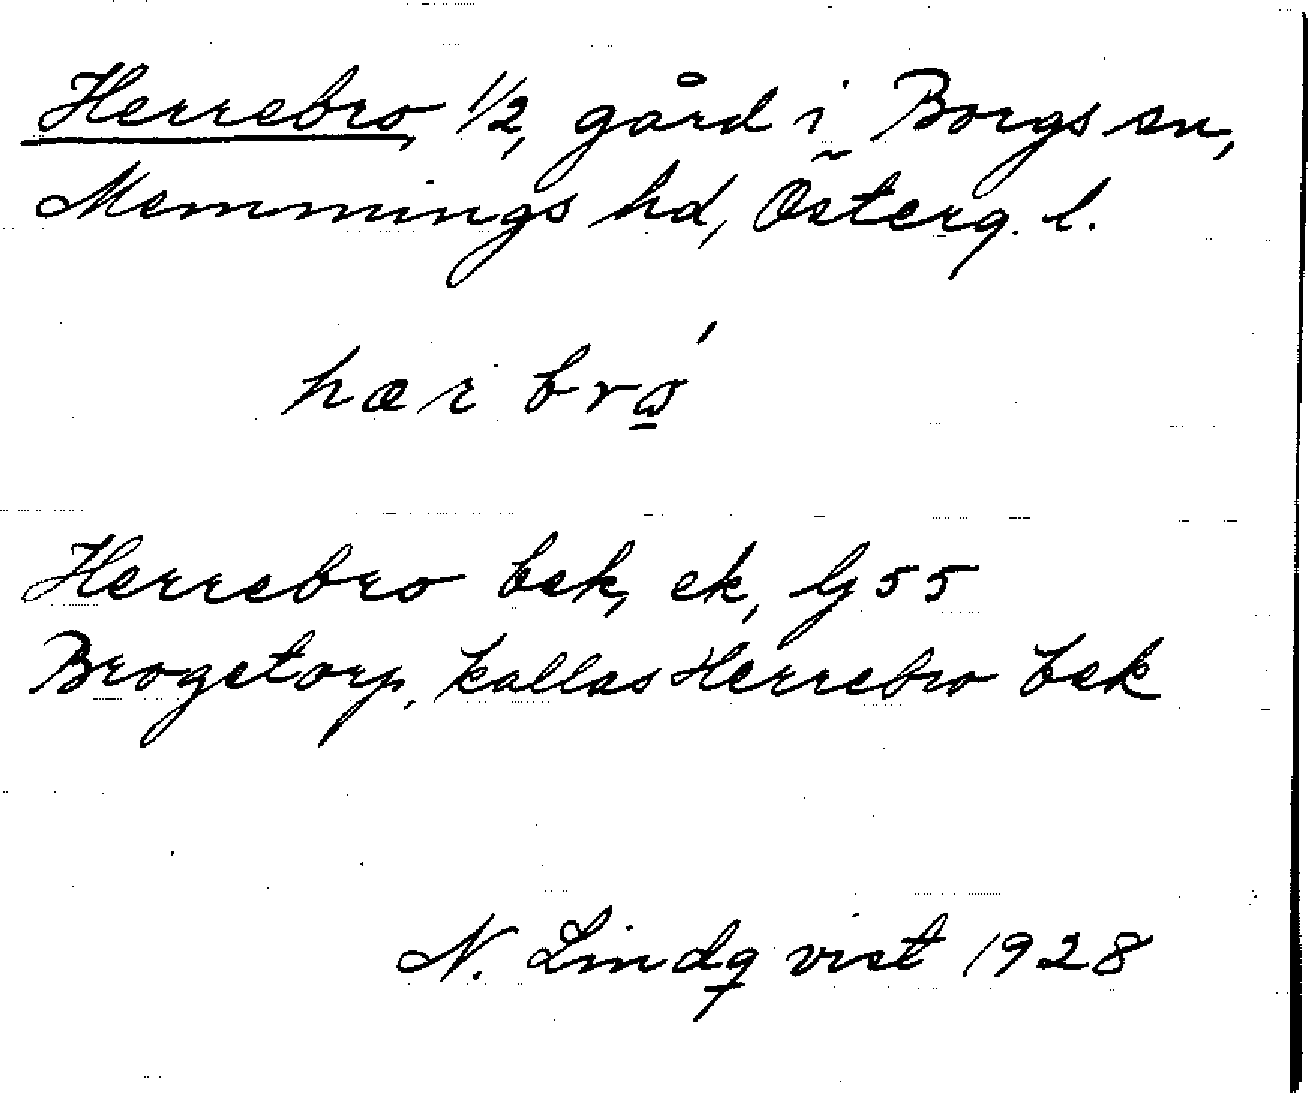 Herrebro, 1/2, gård i Borgs sn,
Memmings hd, Österg. l.
hær brώ̲
Herrebro bek, ek, lj 55
Brogetorp, kallas Herrebro bek
N. Lindqvist 1928